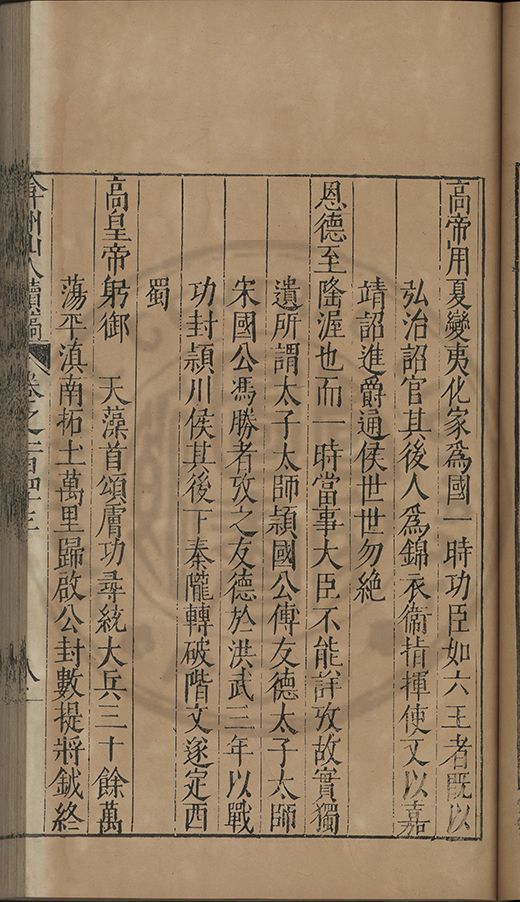 高帝用夏變夷化家爲國一時功臣如六王者既以
弘治詔官其後人爲錦衣衞指揮使又以嘉
靖詔進爵通侯世世勿絶
恩德至隆渥也而一時當事大臣不能詳攷故實獨
遺所謂太子太師頴國公傅友德太子太師
宋國公馮勝者攷之友德於洪武三年以戰
功封頴川侯其後下秦隴轉破階文遂定西
蜀
高皇帝躬御 天藻首頌膚功尋統大兵三十餘萬
蕩平滇南拓土萬里歸啟公封數提將鉞終
弇州山人續稿 卷之一百四十三 八